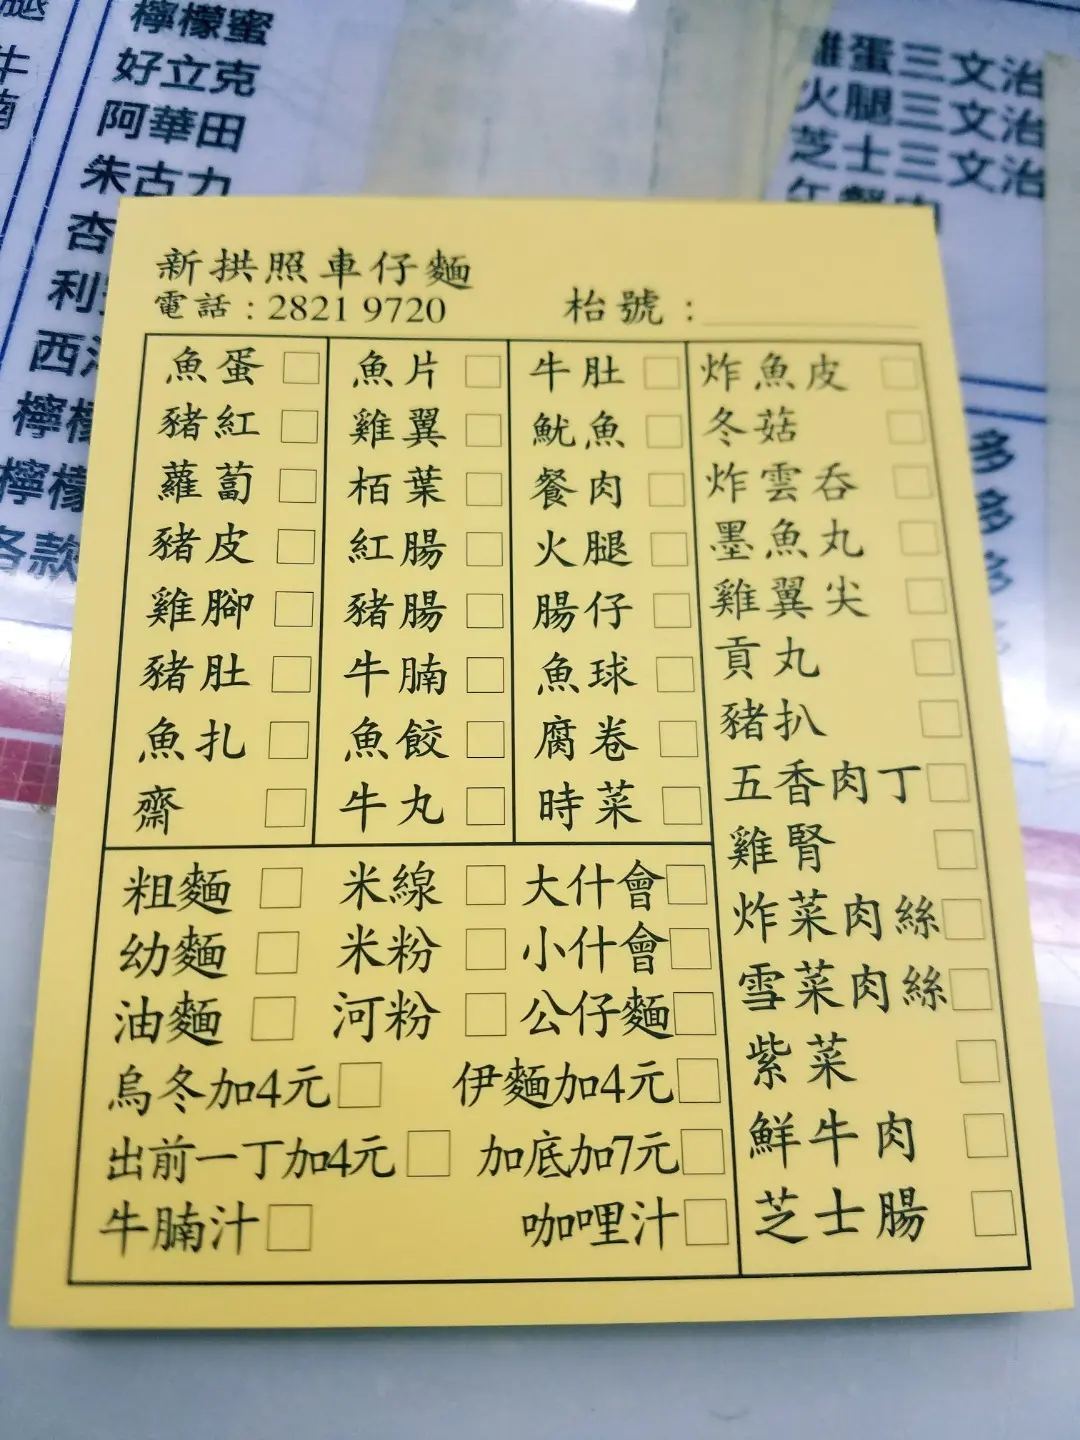 檸檬蜜
好立克
阿華田
朱古力
火腿三文治
芝士三文治
新拱照車仔麵
電話：2821 9720 枱號：
魚蛋 魚片 牛肚 炸魚皮
豬紅 雞翼 魷魚 冬菇
蘿蔔 栢葉 餐肉 炸雲吞
豬皮 紅腸 火腿 墨魚丸
雞腳 豬腸 腸仔 雞翼尖
豬肚 牛腩 魚球 貢丸
魚扎 魚餃 腐卷 豬扒
齋 牛丸 時菜 五香肉丁
雞腎
粗麵 米線 大什會 炸菜肉絲
幼麵 米粉 小什會 雪菜肉絲
油麵 河粉 公仔麵 紫菜
烏冬加4元 伊麵加4元 鮮牛肉
出前一丁加4元 加底加7元 芝士腸
牛腩汁 咖哩汁